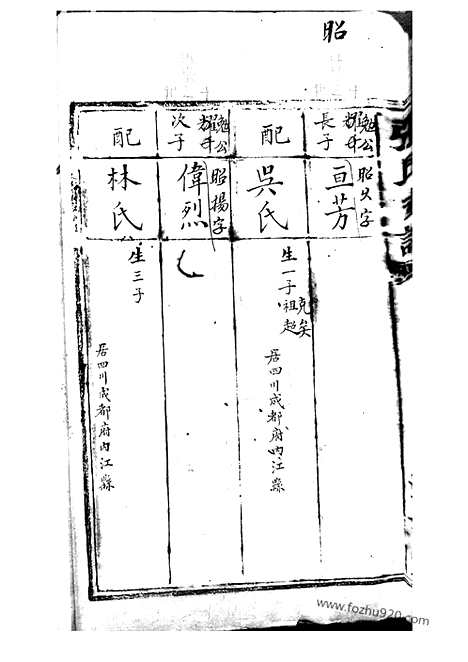 昭
張氏
勉公
長子
昭文字
亘芳
配
吳氏
生一子祖超
克矣
居四川成都府內江縣
勉公
次子
昭揚字
偉烈
配
林氏
生三子
居四川成都府內江縣
www.fozhu920.com